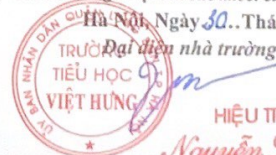 Hà Nội, Ngày 30..Thá
Đại diện nhà trường
ỦY BAN NHÂN DÂN QUẬN
TRƯỜNG
TIỂU HỌC
VIỆT HƯNG
HIỆU T
Nguyễn